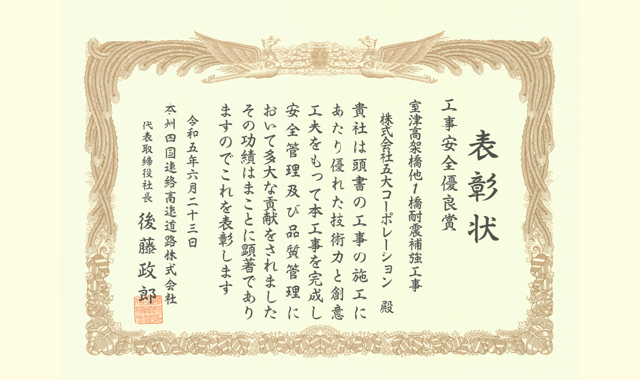 表彰状
工事安全優良賞
室津高架橋他1橋耐震補強工事
株式会社五大コーポレーション 殿
貴社は頭書の工事の施工に
あたり優れた技術力と創意
工夫をもって本工事を完成し
安全管理及び品質管理に
おいて多大な貢献をされました
その功績はまことに顕著であり
ますのでこれを表彰します
令和五年六月二十三日
本州四国連絡高速道路株式会社
代表取締役社長 後藤政郎